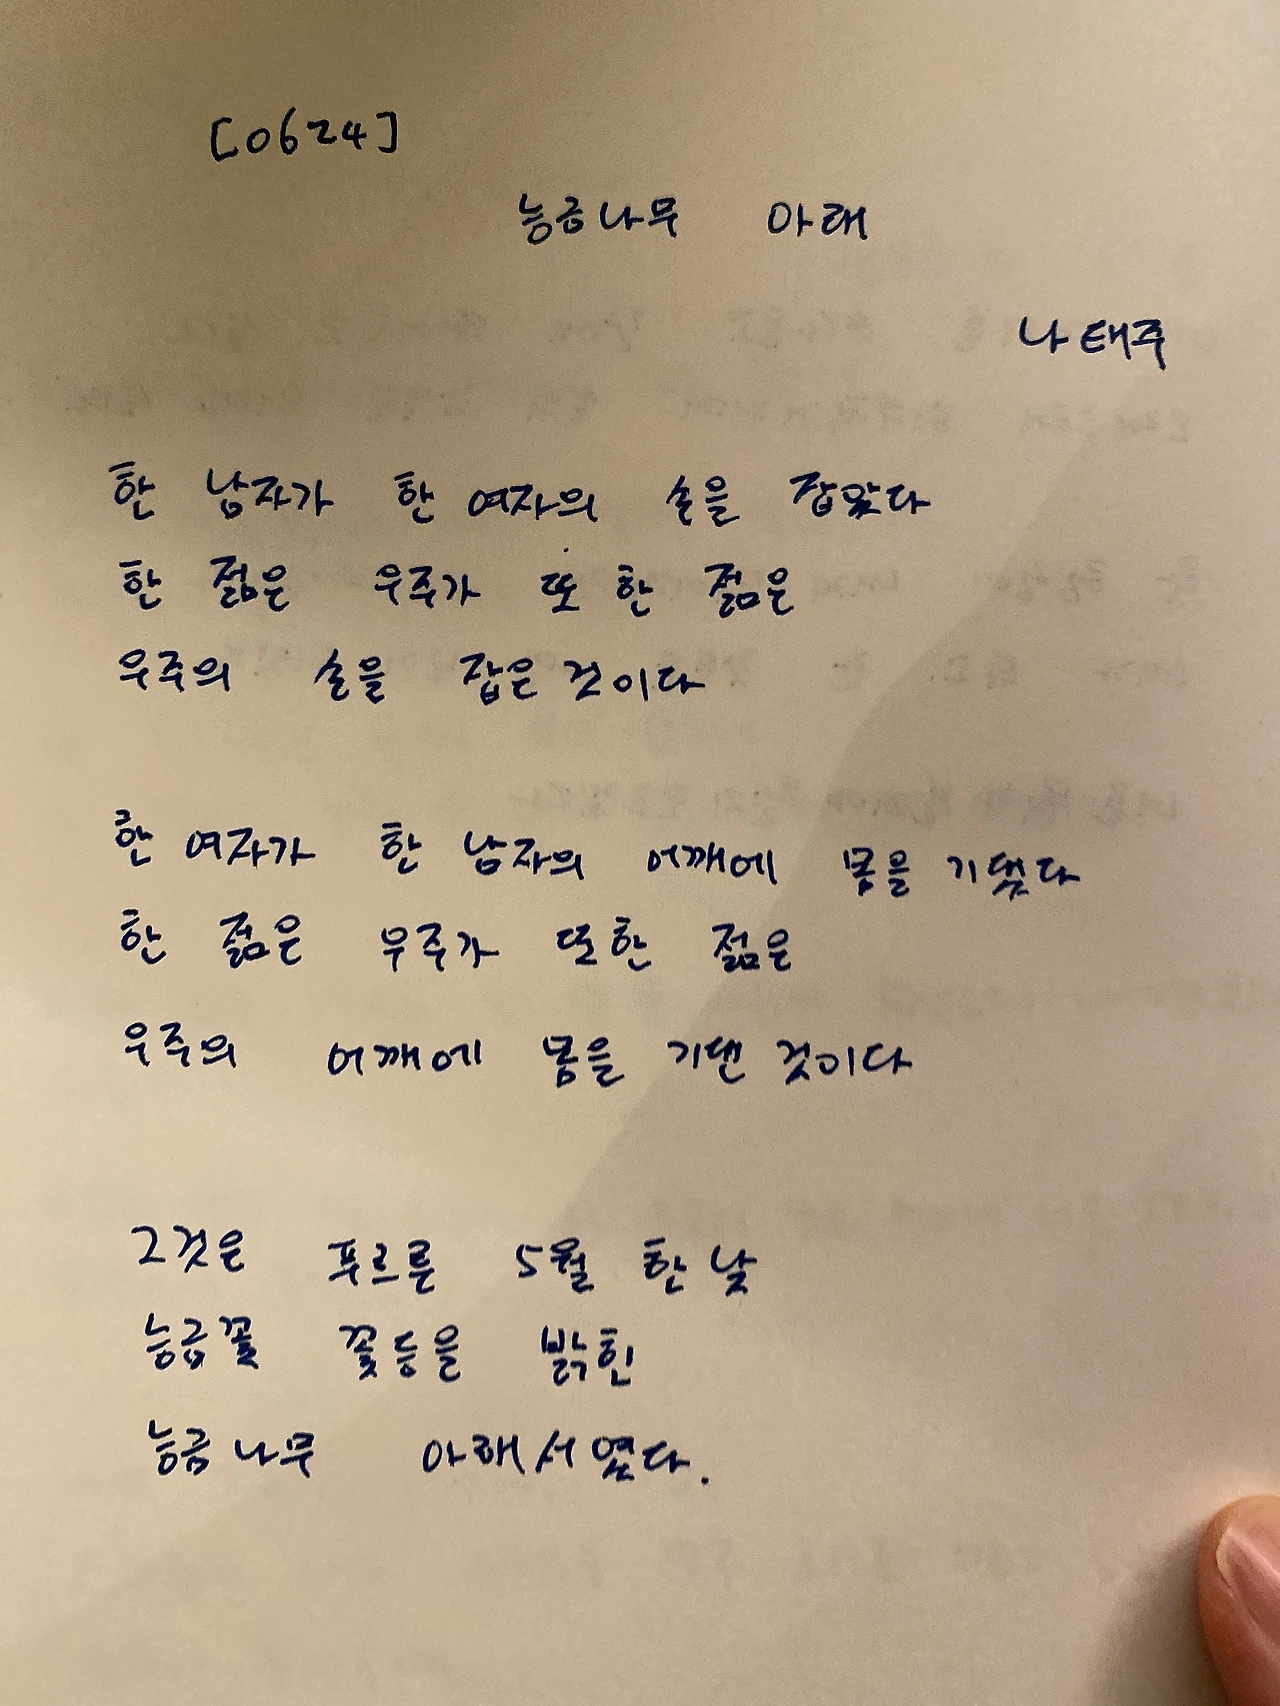 [0624]
능금나무 아래
나태주
한 남자가 한 여자의 손을 잡았다
한 젊은 우주가 또 한 젊은
우주의 손을 잡은 것이다
한 여자가 한 남자의 어깨에 몸을 기댔다
한 젊은 우주가 또 한 젊은
우주의 어깨에 몸을 기댄 것이다
그것은 푸르른 5월 한낮
능금꽃 꽃등을 밝힌
능금나무 아래서였다.